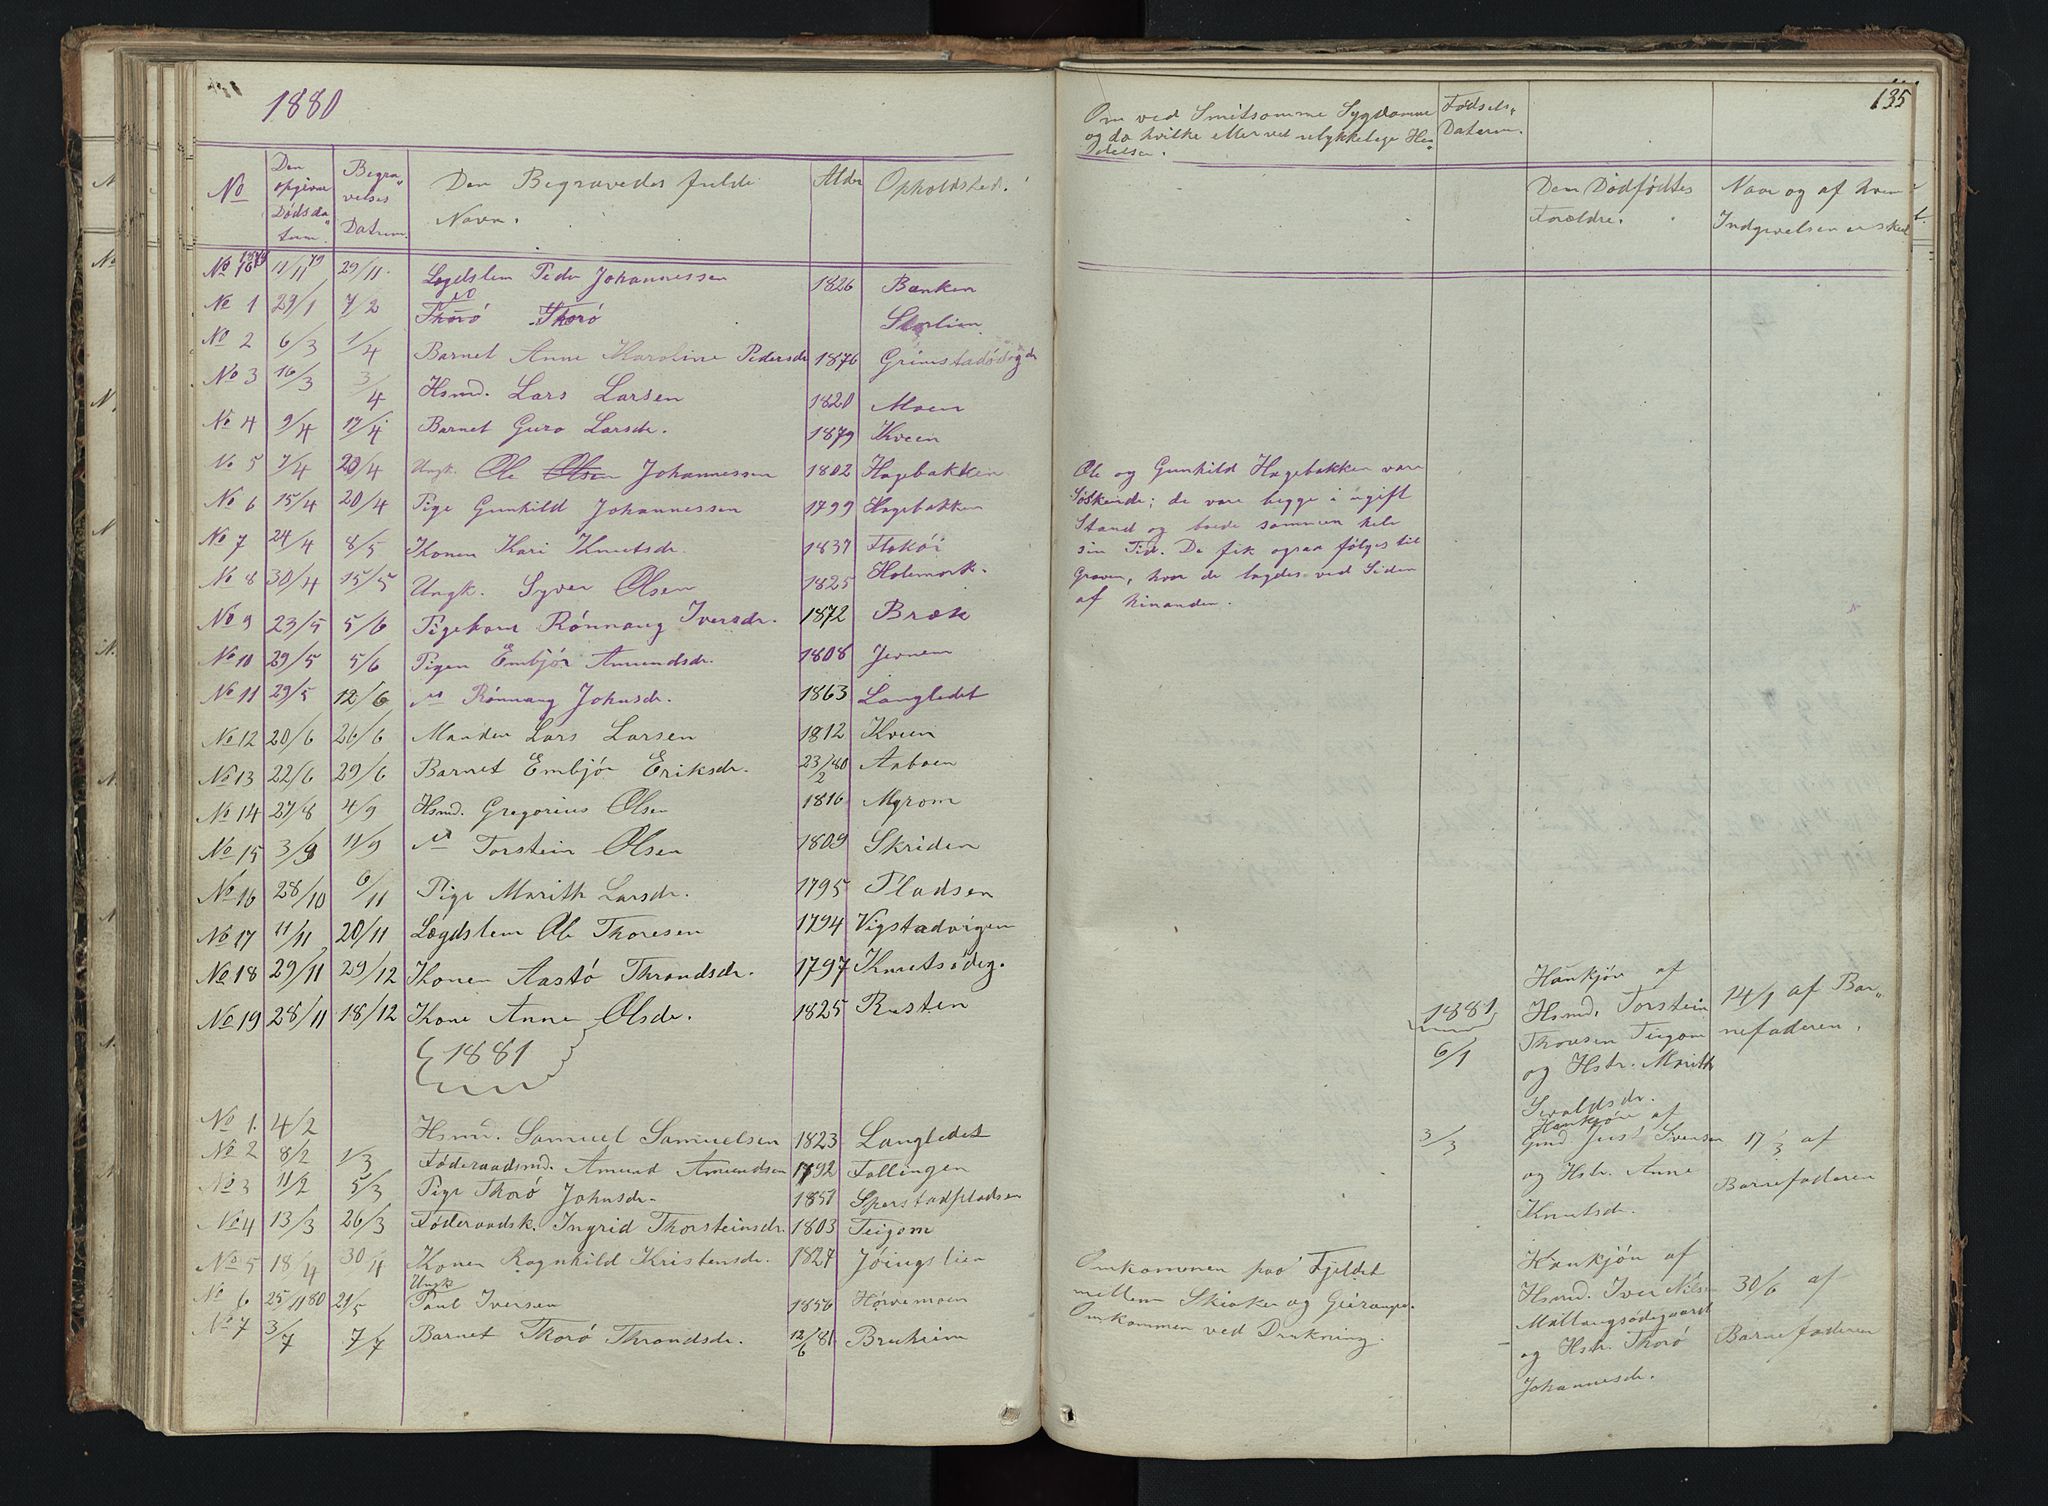 1880
135
No
Den opgivne Dødsdatum
Begravelses Datum
Den Begravedes fulde Navn.
Alder
Opholdsted.
Om ved Smitsomme Sygdomme
og da hvilke eller ved ulykkelige Hen-
delser.
Fødsels-
Datum.
Den Dødfødtes
Forældre.
Naar og af hvem
Indgivelsen er skeet
No 16 11/11 79 29/11. Lægdslem Peder Johannessen 1826 Bakken
No 1 29/1 7/2 Thorø
No 2 6/3 1/4 Barnet Anne Karoline Pedersdr 1876
No 3 16/3 3/4 Hsmd. Lars Larsen 1820 Moen
No 4 9/4 17/4 Barnet Guro Larsdr. 1879 Kveen
No 5 7/4 20/4 Ungk. Ole Olsen Johannessen 1802 Hagebakken
No 6 15/4 20/4 Pige Gunhild Johannessen 1799 Hagebakken
No 7 24/4 8/5 Konen Kari Knutsdr. 1837
No 8 30/4 15/5 Ungk. Syver Olsen 1825 Holemork.
No 9 23/5 5/6 Pigebarn Rønnaug Iversdr. 1872 Bræk
No 10 29/5 5/6 Pigen Embjør Amundsdr. 1808
No 11 29/5 12/6 Rønnaug Johnsdr. 1863 Langledet
No 12 20/6 26/6 Manden Lars Larsen 1812 Kveen
No 13 22/6 29/6 Barnet Embjør Eriksdr. 23/2 80 Aaboen
No 14 27/8 4/9 Hsmd. Gregorius Olsen 1816 Myrom
No 15 3/9 11/9 Torstein Olsen 1809 Skriden
No 16 28/10 6/11 Pige Marith Larsdr. 1795 Pladsen
No 17 11/11 20/11 Lægdslem Ole Thoresen 1794 Vigstadvigen
No 18 29/11 29/12 Konen Aastø Throndsdr. 1797 Knutsødeg.
No 19 28/11 18/12 Kone Anne Olsdr. 1825 Rusten
1881
No 1. 4/2 Hsmd. Samuel Samuelsen 1823 Langledet
No 2 8/2 1/3 Føderaadsmd. Amund Amundsen 1792 Follingen
No 3 11/2 5/3 Pige Thorø Johnsdr. 1857 Sperstadpladsen
No 4 13/3 26/3 Føderaadsk. Ingrid Thorsteinsdr. 1803 Teigom
No 5 18/4 30/4 Konen Ragnhild Kristensdr. 1827 Jøingslien
No 6 25/11 80 21/5 Ungk Paul Iversen 1856 Hørvemoen
No 7 3/7 7/7 Barnet Thorø Throndsdr. 12/6 81 Bruheim
Ole og Gunhild Hagebakken vare
Søskende; de vare begge i ugift
Stand og boede sammen hele
sin Tid. De fik ogsaa følges til
Graven, hvor de lagdes ved Siden
af hinanden.
1881
6/1
Hankjøn af
Hsmd. Torstein
Thoresen Teigom
og Hstr. Marith
Sevaldsdr.
14/1 af Bar-
nefaderen.
3/3
Hankjøn af
Gmd. Just Svensen
og Hstr. Anne
Knutsdr.
17/3 af
Barnefaderen
Omkommen paa Fjeldet
mellem Skiaker og Geiranger.
Omkommen ved Drukning.
Hankjøn af
Hsmd. Iver Nilsen
og Hstr. Thorø
Johannesdr.
30/6 af
Barnefaderen